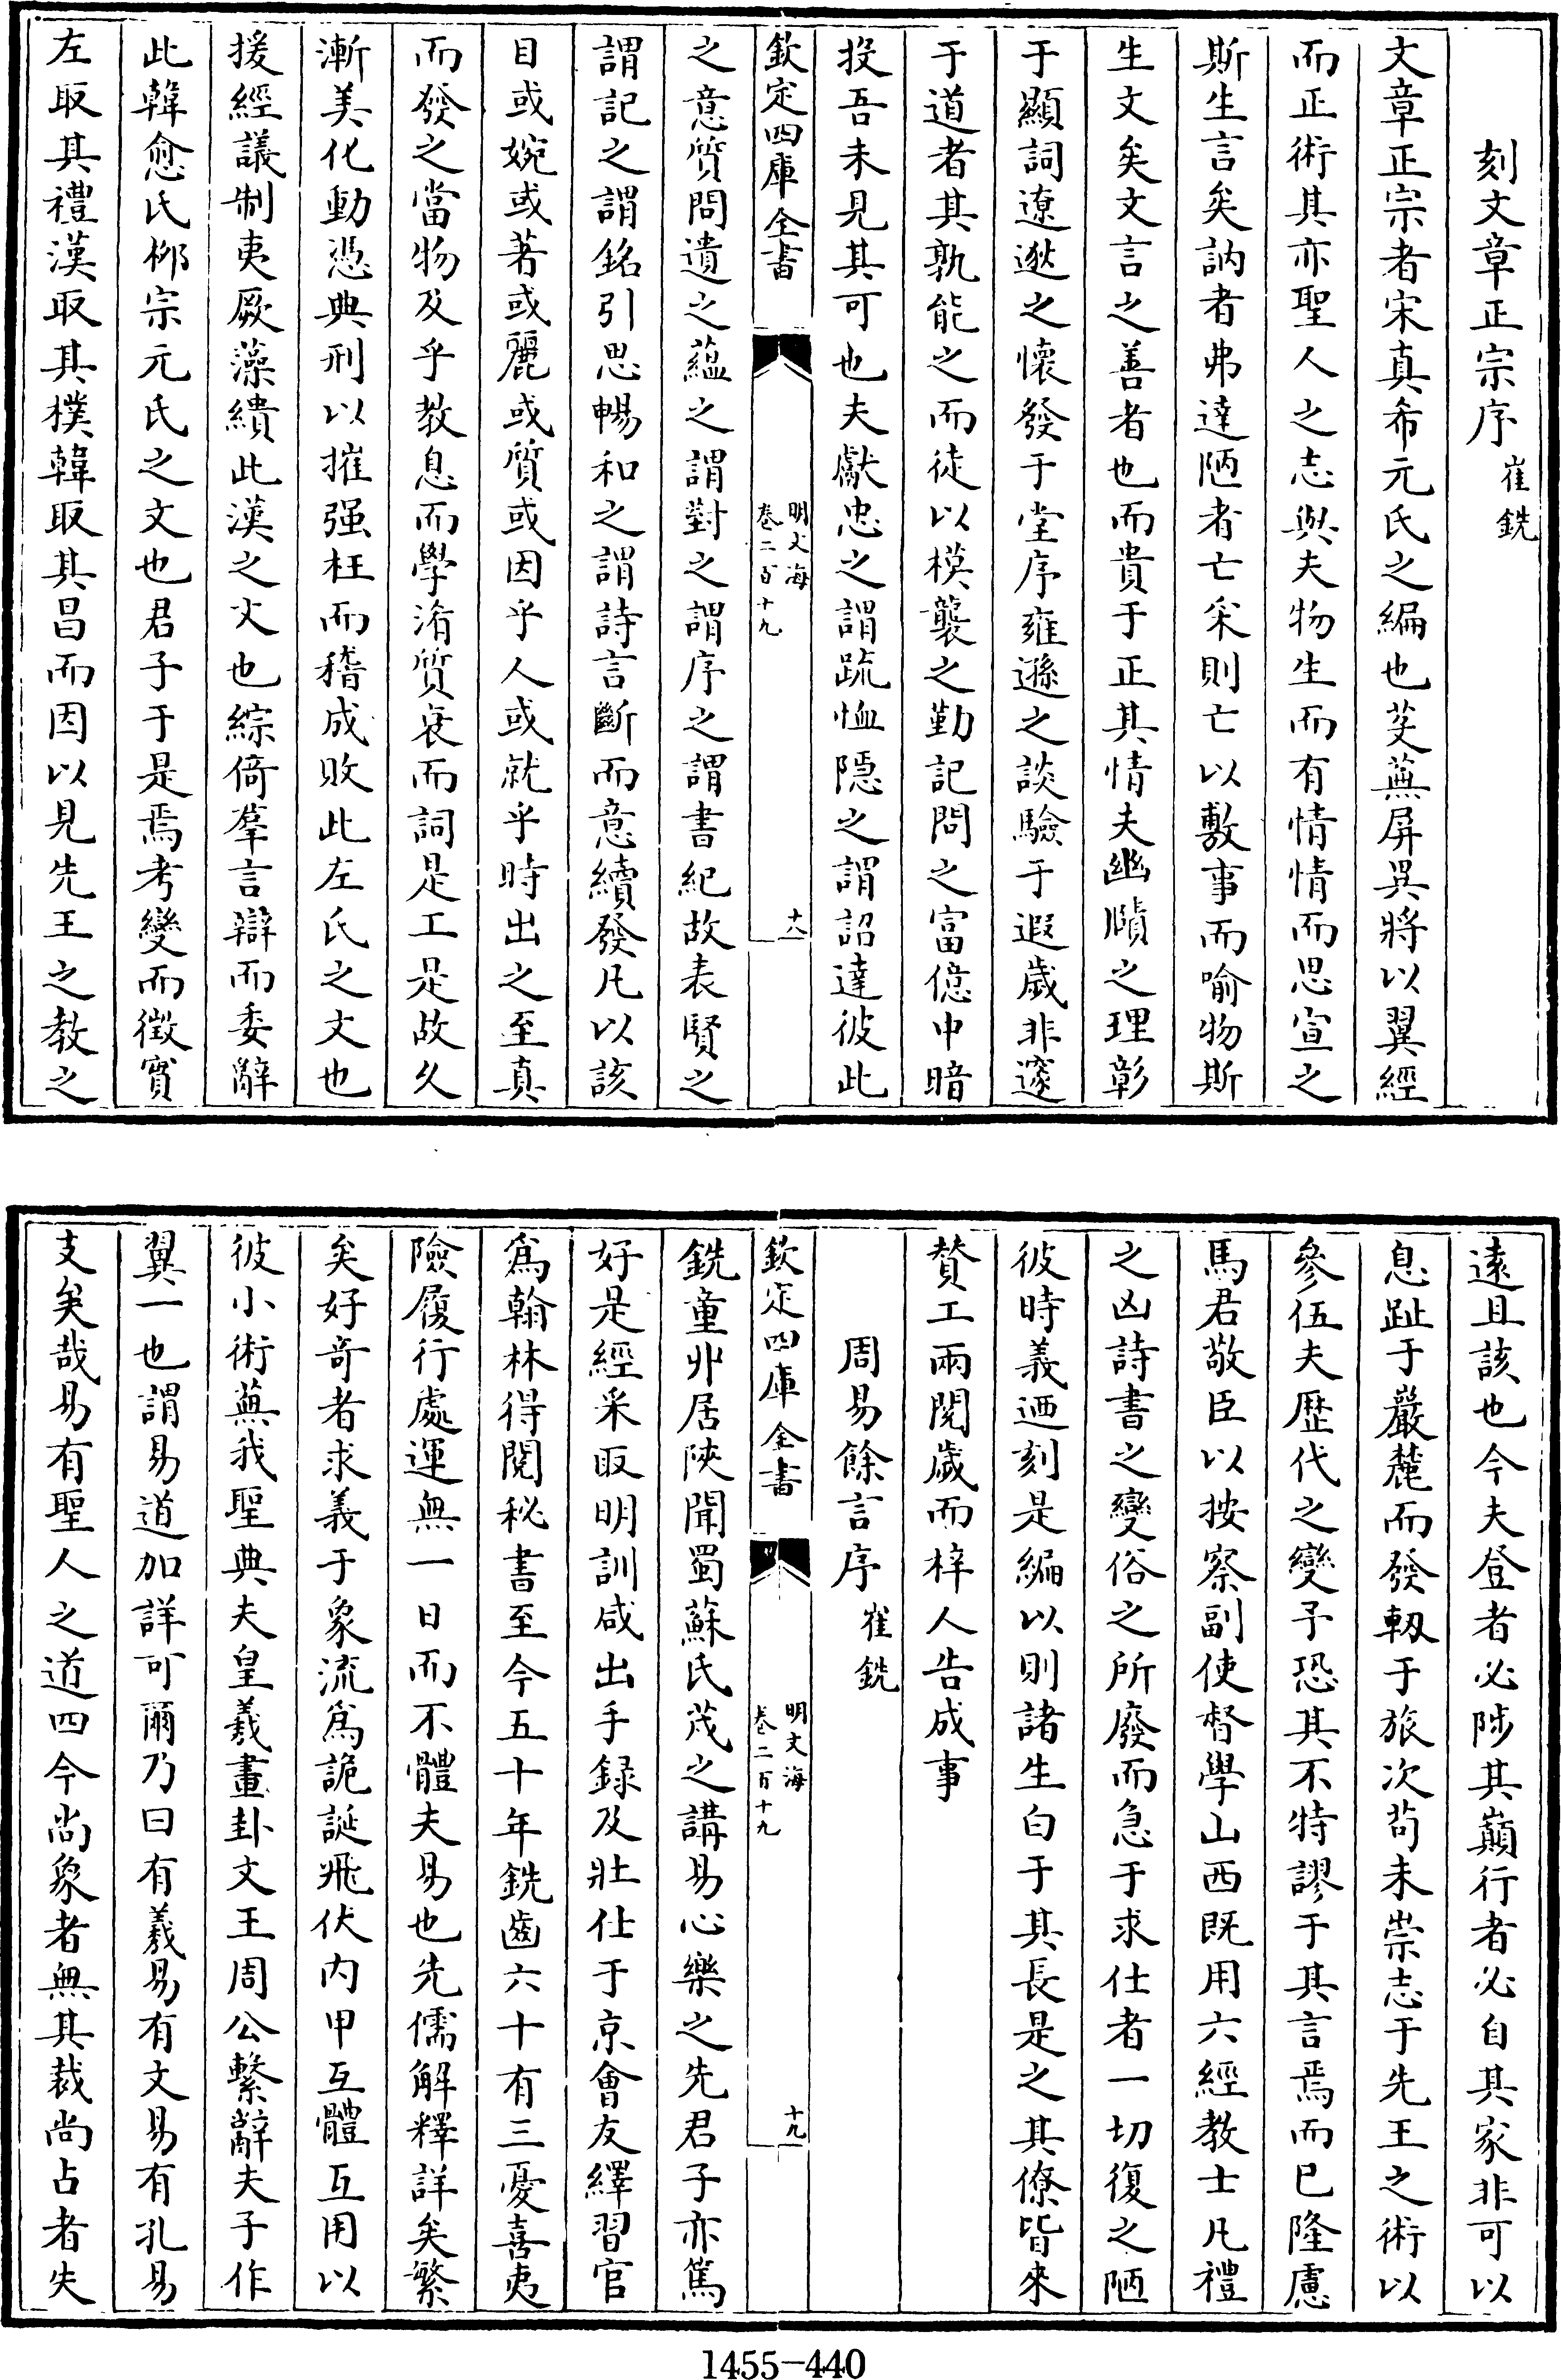 刻文章正宗序崔銑
文章正宗者宋真希元氏之編也芟蕪屏異將以翼經
而正術其亦聖人之志與夫物生而有情情而思宣之
斯生言矣訥者弗達陋者亡采則亡以敷事而喻物斯
生文矣文言之善者也而貴于正其情夫幽賾之理彰
于顯詞遼逖之懷發于堂序雍遜之談驗于遐歲非邃
于道者其孰能之而徒以模襲之勤記問之富億中暗
投吾未見其可也夫獻忠之謂疏恤隱之謂詔達彼此
欽定四庫全書
明文海
卷二百十九
十八
之意質問遺之蘊之謂對之謂序之謂書紀故表賢之
謂記之謂銘引思暢和之謂詩言斷而意續發凡以該
目或婉或著或麗或質或因乎人或就乎時出之至真
而發之當物及乎教息而學淆質衰而詞是工是故久
漸美化動憑典刑以摧强枉而稽成敗此左氏之文也
援經議制夷厥藻繢此漢之火也綜倚羣言辯而委辭
此韓愈氏栁宗元氏之文也君子于是焉考變而徵實
左取其禮漢取其樸韓取其昌而因以見先王之教之
遠且該也今夫登者必陟其巔行者必自其家非可以
息趾于巖麓而發軔于旅次苟未崇志于先王之術以
參伍夫歷代之變予恐其不特謬于其言焉而已隆慮
馬君敬臣以按察副使督學山西既用六經教士凡禮
之凶詩書之變俗之所廢而急于求仕者一切復之陋
彼時義迺刻是編以則諸生白于其長是之其僚皆來
贊工兩閱歲而梓人告成事
周易餘言序崔銑
欽定四庫全書
明文海
卷二百十九
十九
銑童丱居陜聞蜀蘇氏茂之講易心樂之先君子亦篤
好是經采取明訓咸出手録及壯仕于京會友繹習官
爲翰林得閱秘書至今五十年銑齒六十有三憂喜夷
險履行處運無一日而不體夫易也先儒解釋詳矣繁
矣好奇者求義于象流爲詭誕飛伏内甲互體互用以
彼小術蕪我聖典夫皇羲畫卦文王周公繫辭夫子作
翼一也謂易道加詳可爾乃曰有羲易有文易有孔易
支矣哉易有聖人之道四今尚象者無其裁尚占者失
1455-440